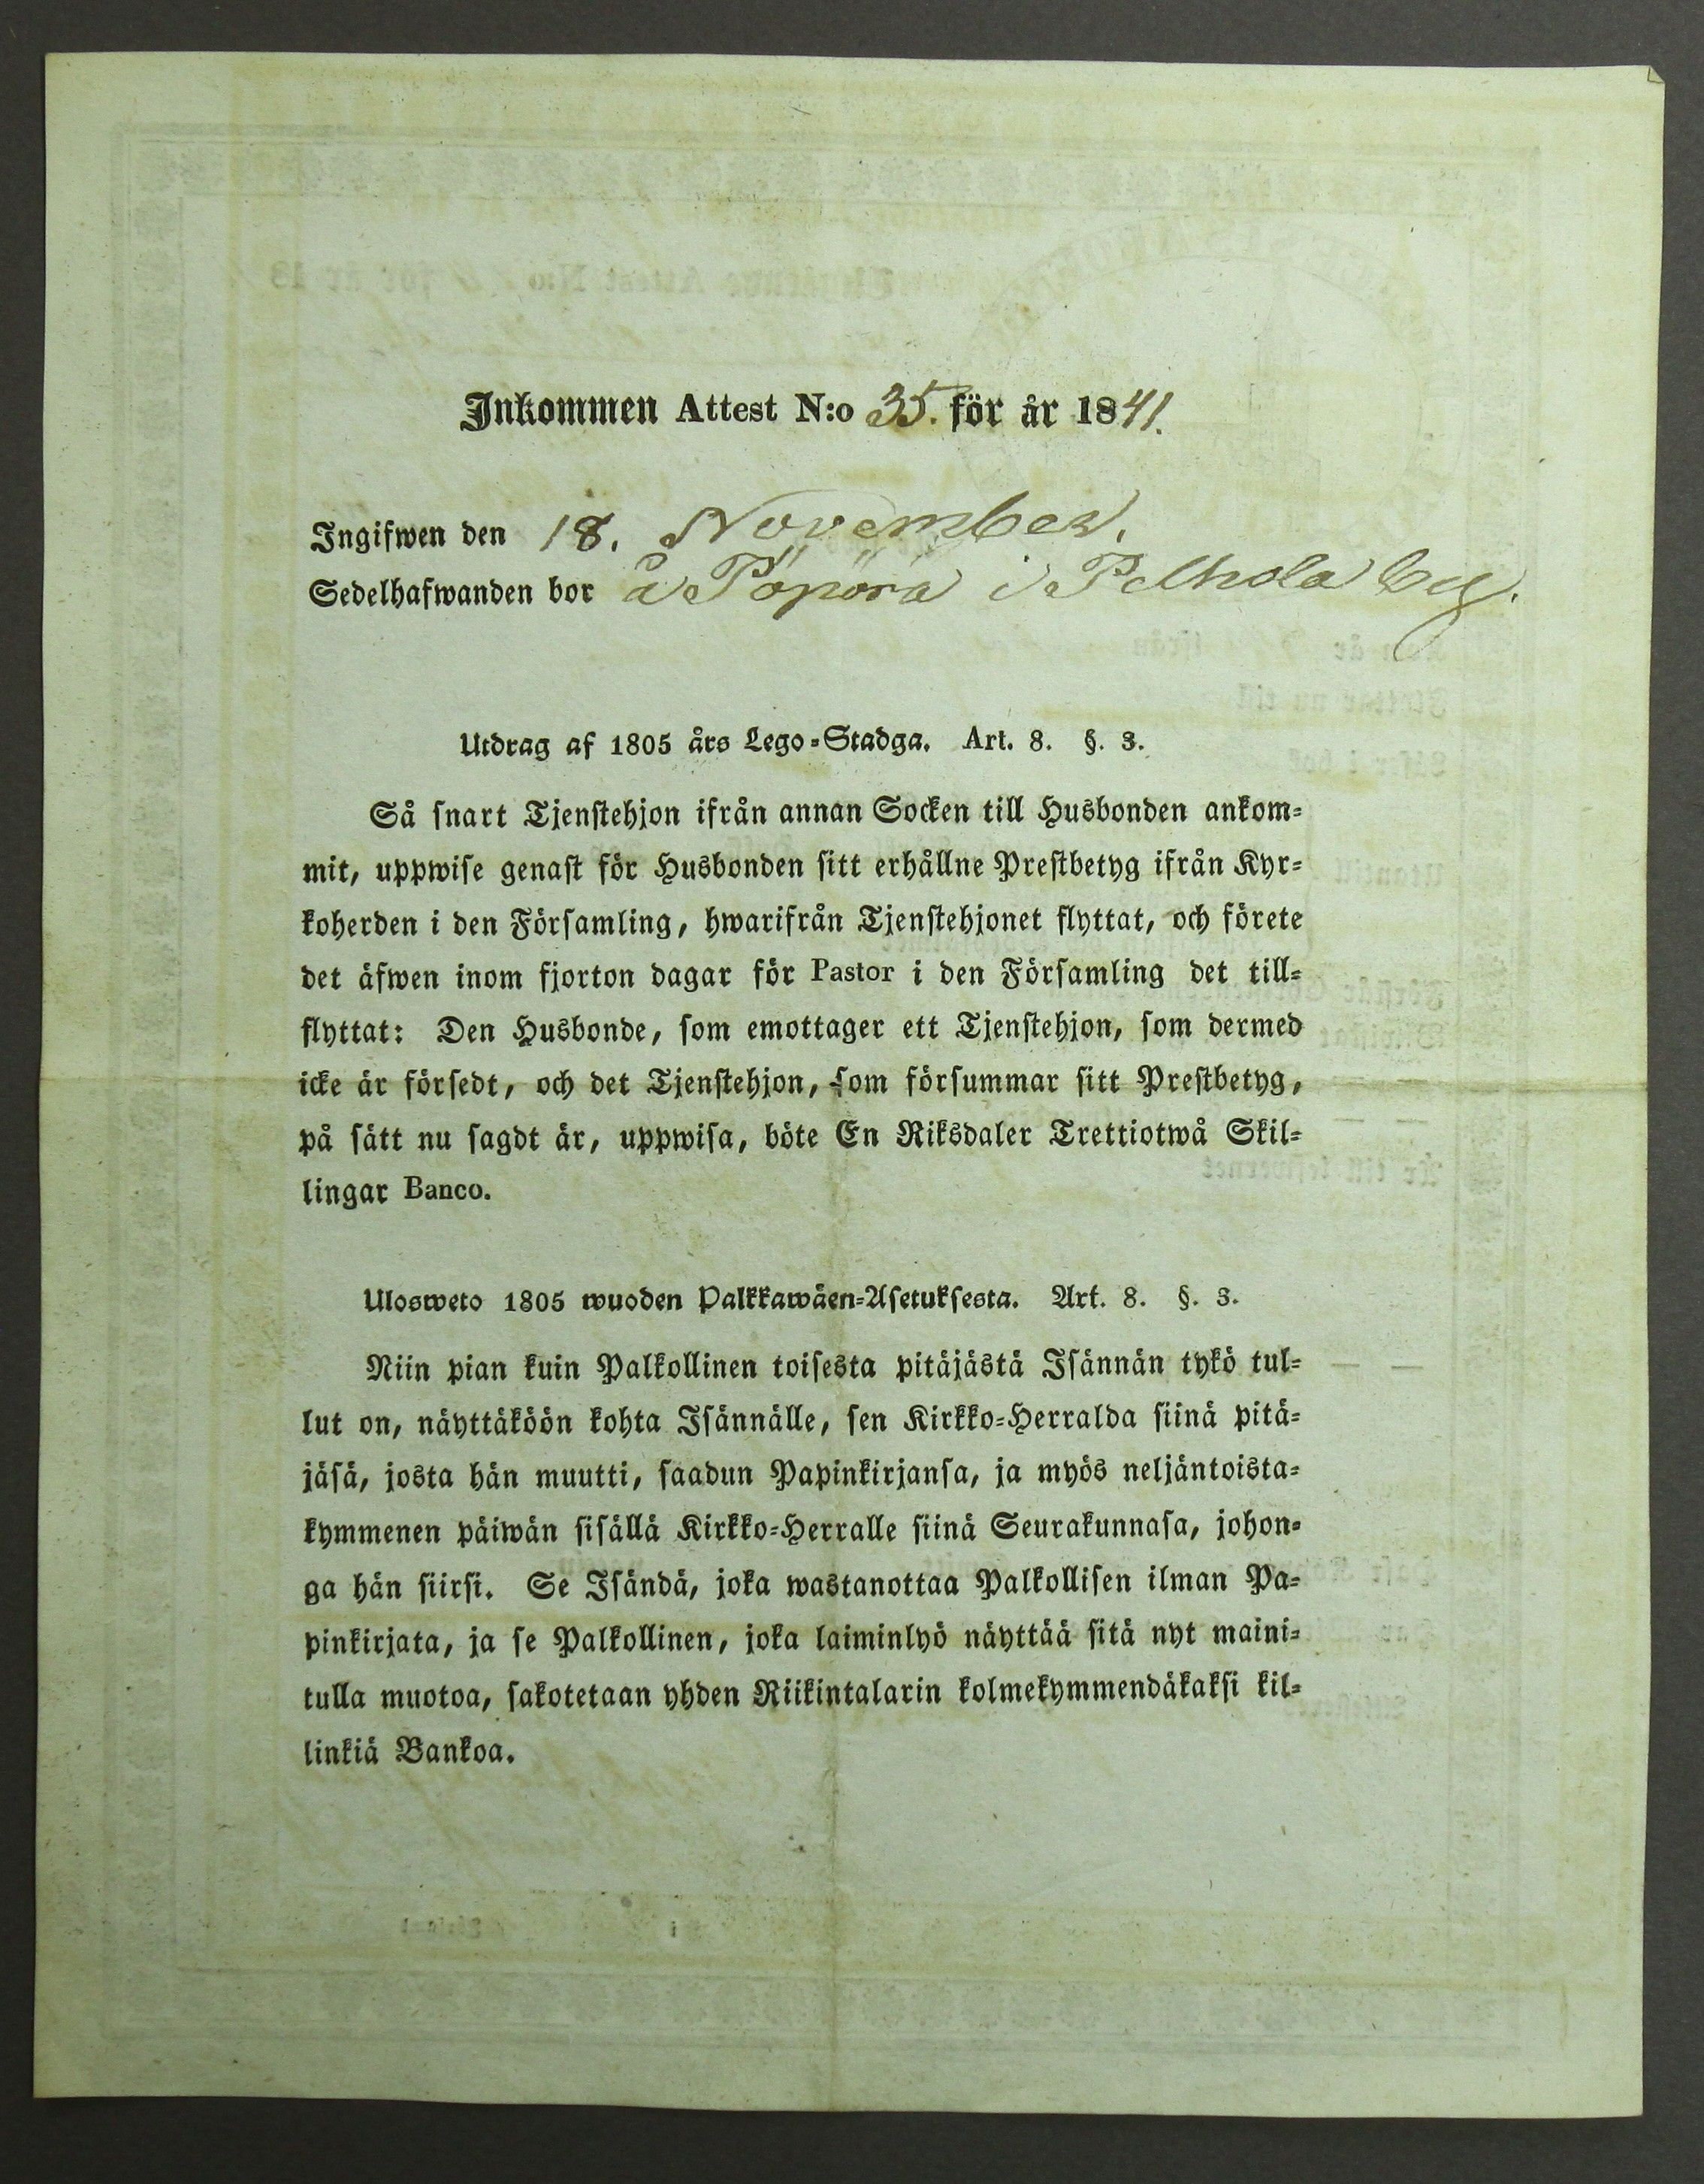 Inkommen Attest N:o 35. för år 1841.
Ingifwen den 18. November.
Sedelhafwanden bor å Pöpörä i Pelhola by.
Utdrag af 1805 års Lego-Stadga. Art. 8. §. 3.
Så snart Tjenstehjon ifrån annan Socken till Husbonden ankom-
mit, uppwise genast för Husbonden sitt erhållne Prestbetyg ifrån Kyr-
koherden i den Församling, hwarifrån Tjenstehjonet flyttat, och förete
det äfwen inom fjorton dagar för Pastor i den Församling det till-
flyttat: Den Husbonde, som emottager ett Tjenstehjon, som dermed
icke är försedt, och det Tjenstehjon, som försummar sitt Prestbetyg,
på sätt nu sagdt är, uppwisa, böte En Riksdaler Trettiotwå Skil-
lingar Banco.
Ulosweto 1805 wuoden Palkkawäen-Asetuksesta. Art. 8. §. 3.
Niin pian kuin Palkollinen toisesta pitäjästä Isännän tykö tul-
lut on, näyttäköön kohta Isännälle, sen Kirkko-Herralda siinä pitä-
jäsä, josta hän muutti, saadun Papinkirjansa, ja myös neljäntoista-
kymmenen päiwän sisällä Kirkko-Herralle siinä Seurakunnasa, johon-
ga hän siirsi. Se Isändä, joka wastanottaa Palkollisen ilman Pa-
pinkirjata, ja se Palkollinen, joka laiminlyö näyttää sitä nyt maini-
tulla muotoa, sakotetaan yhden Riikintalarin kolmekymmendäkaksi kil-
linkiä Bankoa.